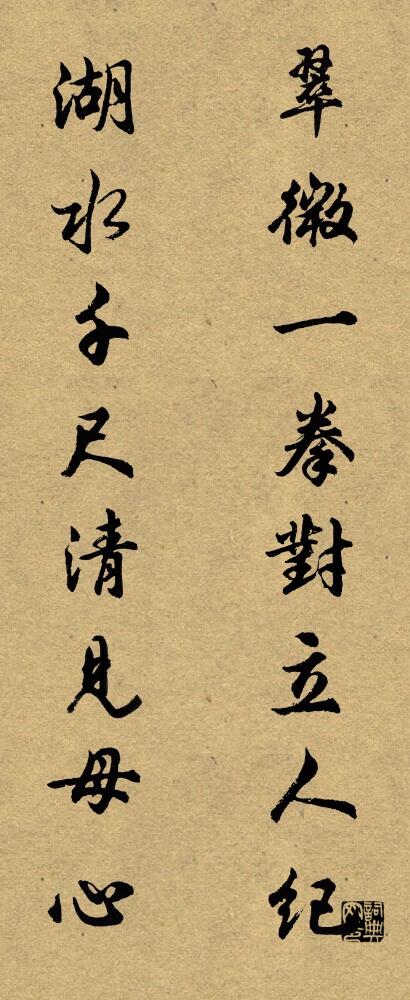 翠微一拳對立人紀
湖水千尺清見母心